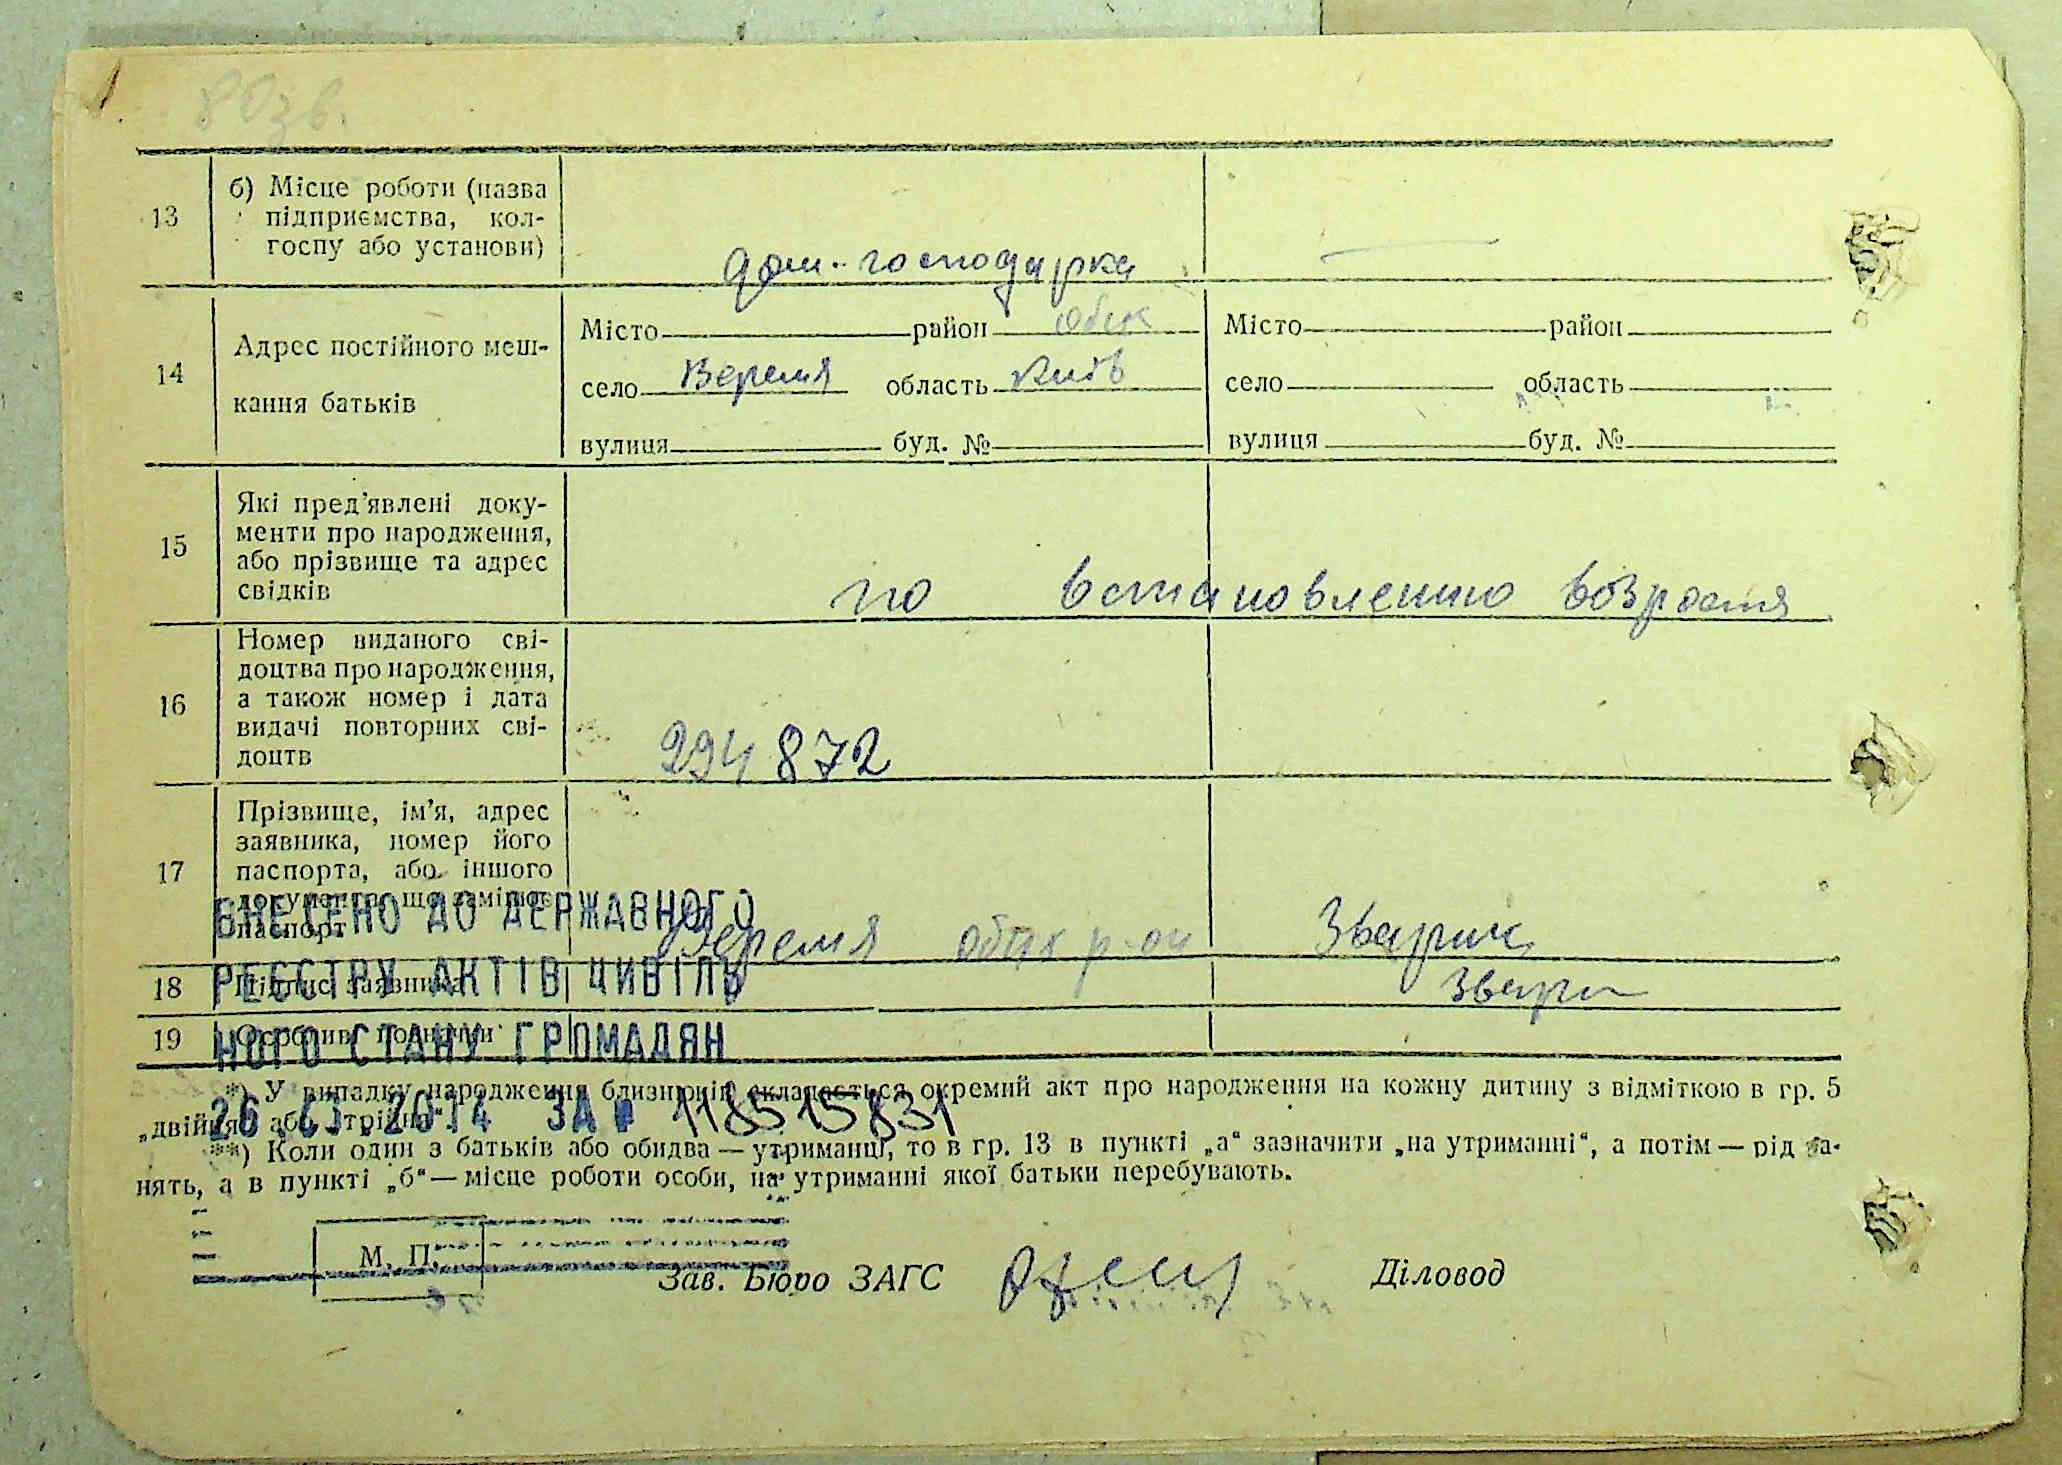 80зв.
13
б) Місце роботи (назва
підприємства, кол-
госпу або установи)
дом. господарка
14
Адрес постійного меш-
кання батьків
Місто район Обух
село Веремя область Київ
вулиця буд. №
Місто район
село область
вулиця буд. №
15
Які пред'явлені доку-
менти про народження,
або прізвище та адрес
свідків
по встановленню возраста
16
Номер виданого сві-
доцтва про народження,
а також номер і дата
видачі повторних сві-
доцтв
294872
17
Прізвище, ім'я, адрес
заявника, номер його
паспорта, або іншого
документа, що заміняє
паспорт
Веремя обух р-он
18
Підпис заявника
19
ВНЕСЕНО ДО ДЕРЖАВНОГО
РЕЄСТРУ АКТІВ ЦИВІЛЬ
НОГО СТАНУ ГРОМАДЯН
2014 ЗА №
*) У випадку народження близнюків складається окремий акт про народження на кожну дитину з відміткою в гр. 5
„двійня“ або „трійня“.
**) Коли один з батьків або обидва — утриманці, то в гр. 13 в пункті „а“ зазначити „на утриманні“, а потім — рід за-
нять, а в пункті „б“ — місце роботи особи, на утриманні якої батьки перебувають.
М. П.
Зав. Бюро ЗАГС
Діловод